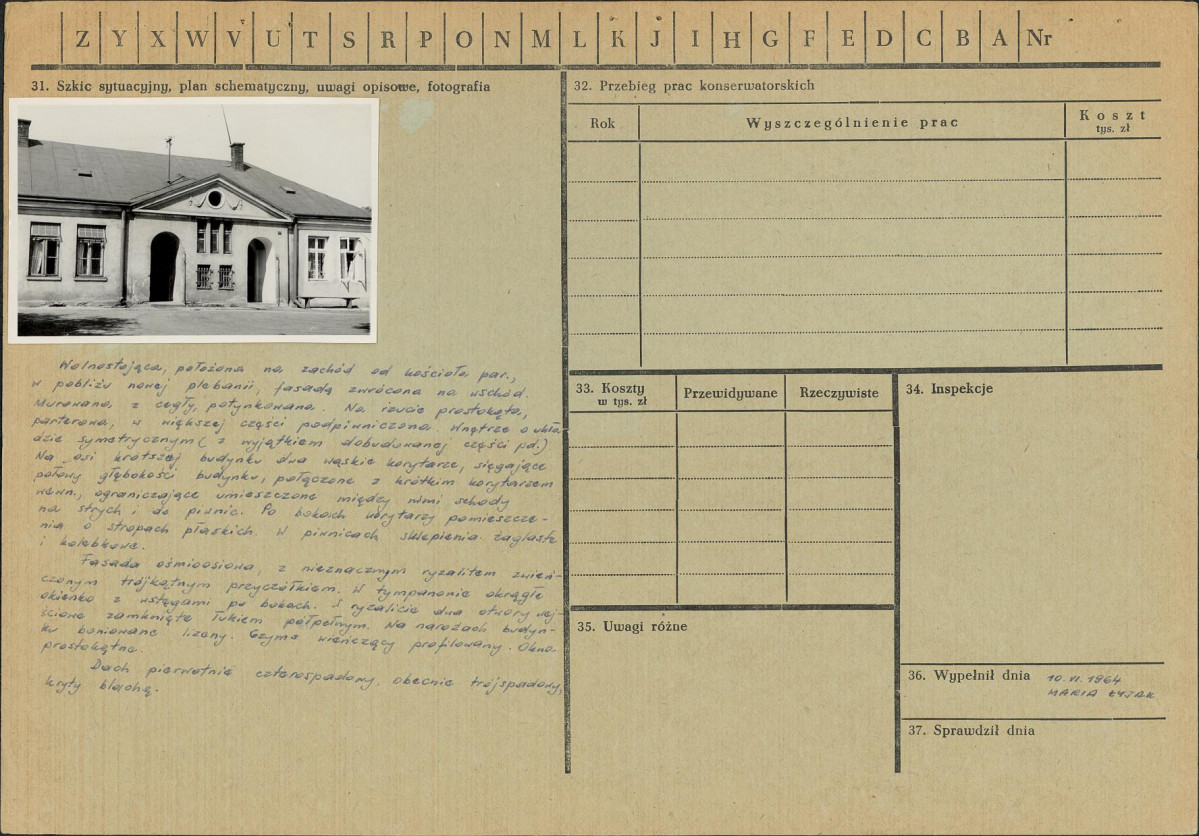 Z Y X W V U T S R P O N M L K J I H G F E D C B A Nr
31. Szkic sytuacyjny, plan schematyczny, uwagi opisowe, fotografia
Wolnostojąca, położona na zachód od kościoła par.,
w pobliżu nowej plebanii, fasadą zwrócona na wschód.
Murowana z cegły, potynkowana. Na rzucie prostokąta,
parterowa, w większej części podpiwniczona. Wnętrze o ukła-
dzie symetrycznym (z wyjątkiem dobudowanej części pd.)
Na osi krótszej budynku dwa wąskie korytarze, sięgające
połowy głębokości budynku, połączone z krótkim korytarzem
wewn., ograniczające umieszczone między nimi schody
na strych i do piwnic. Po bokach korytarzy pomieszcze-
nia o stropach płaskich. W piwnicach sklepienia żaglaste
i kolebkowe.
Fasada ośmioosiowa, z nieznacznym ryzalitem zwień-
czonym trójkątnym przyczółkiem. W tympanonie okrągłe
okienko z wstęgami po bokach. W ryzalicie dwa otwory wej-
ściowe zamknięte łukiem półpełnym. Na narożach budyn-
ku boniowane lizeny. Gzyms wieńczący profilowany. Okna
prostokątne.
Dach pierwotnie czterospadowy, obecnie trójspadowy,
kryty blachą.
32. Przebieg prac konserwatorskich
Rok
Wyszczególnienie prac
Koszt
tys. zł
33. Koszty
w tys. zł
Przewidywane
Rzeczywiste
34. Inspekcje
35. Uwagi różne
36. Wypełnił dnia 10. VI. 1964
MARIA ŁYJAK
37. Sprawdził dnia